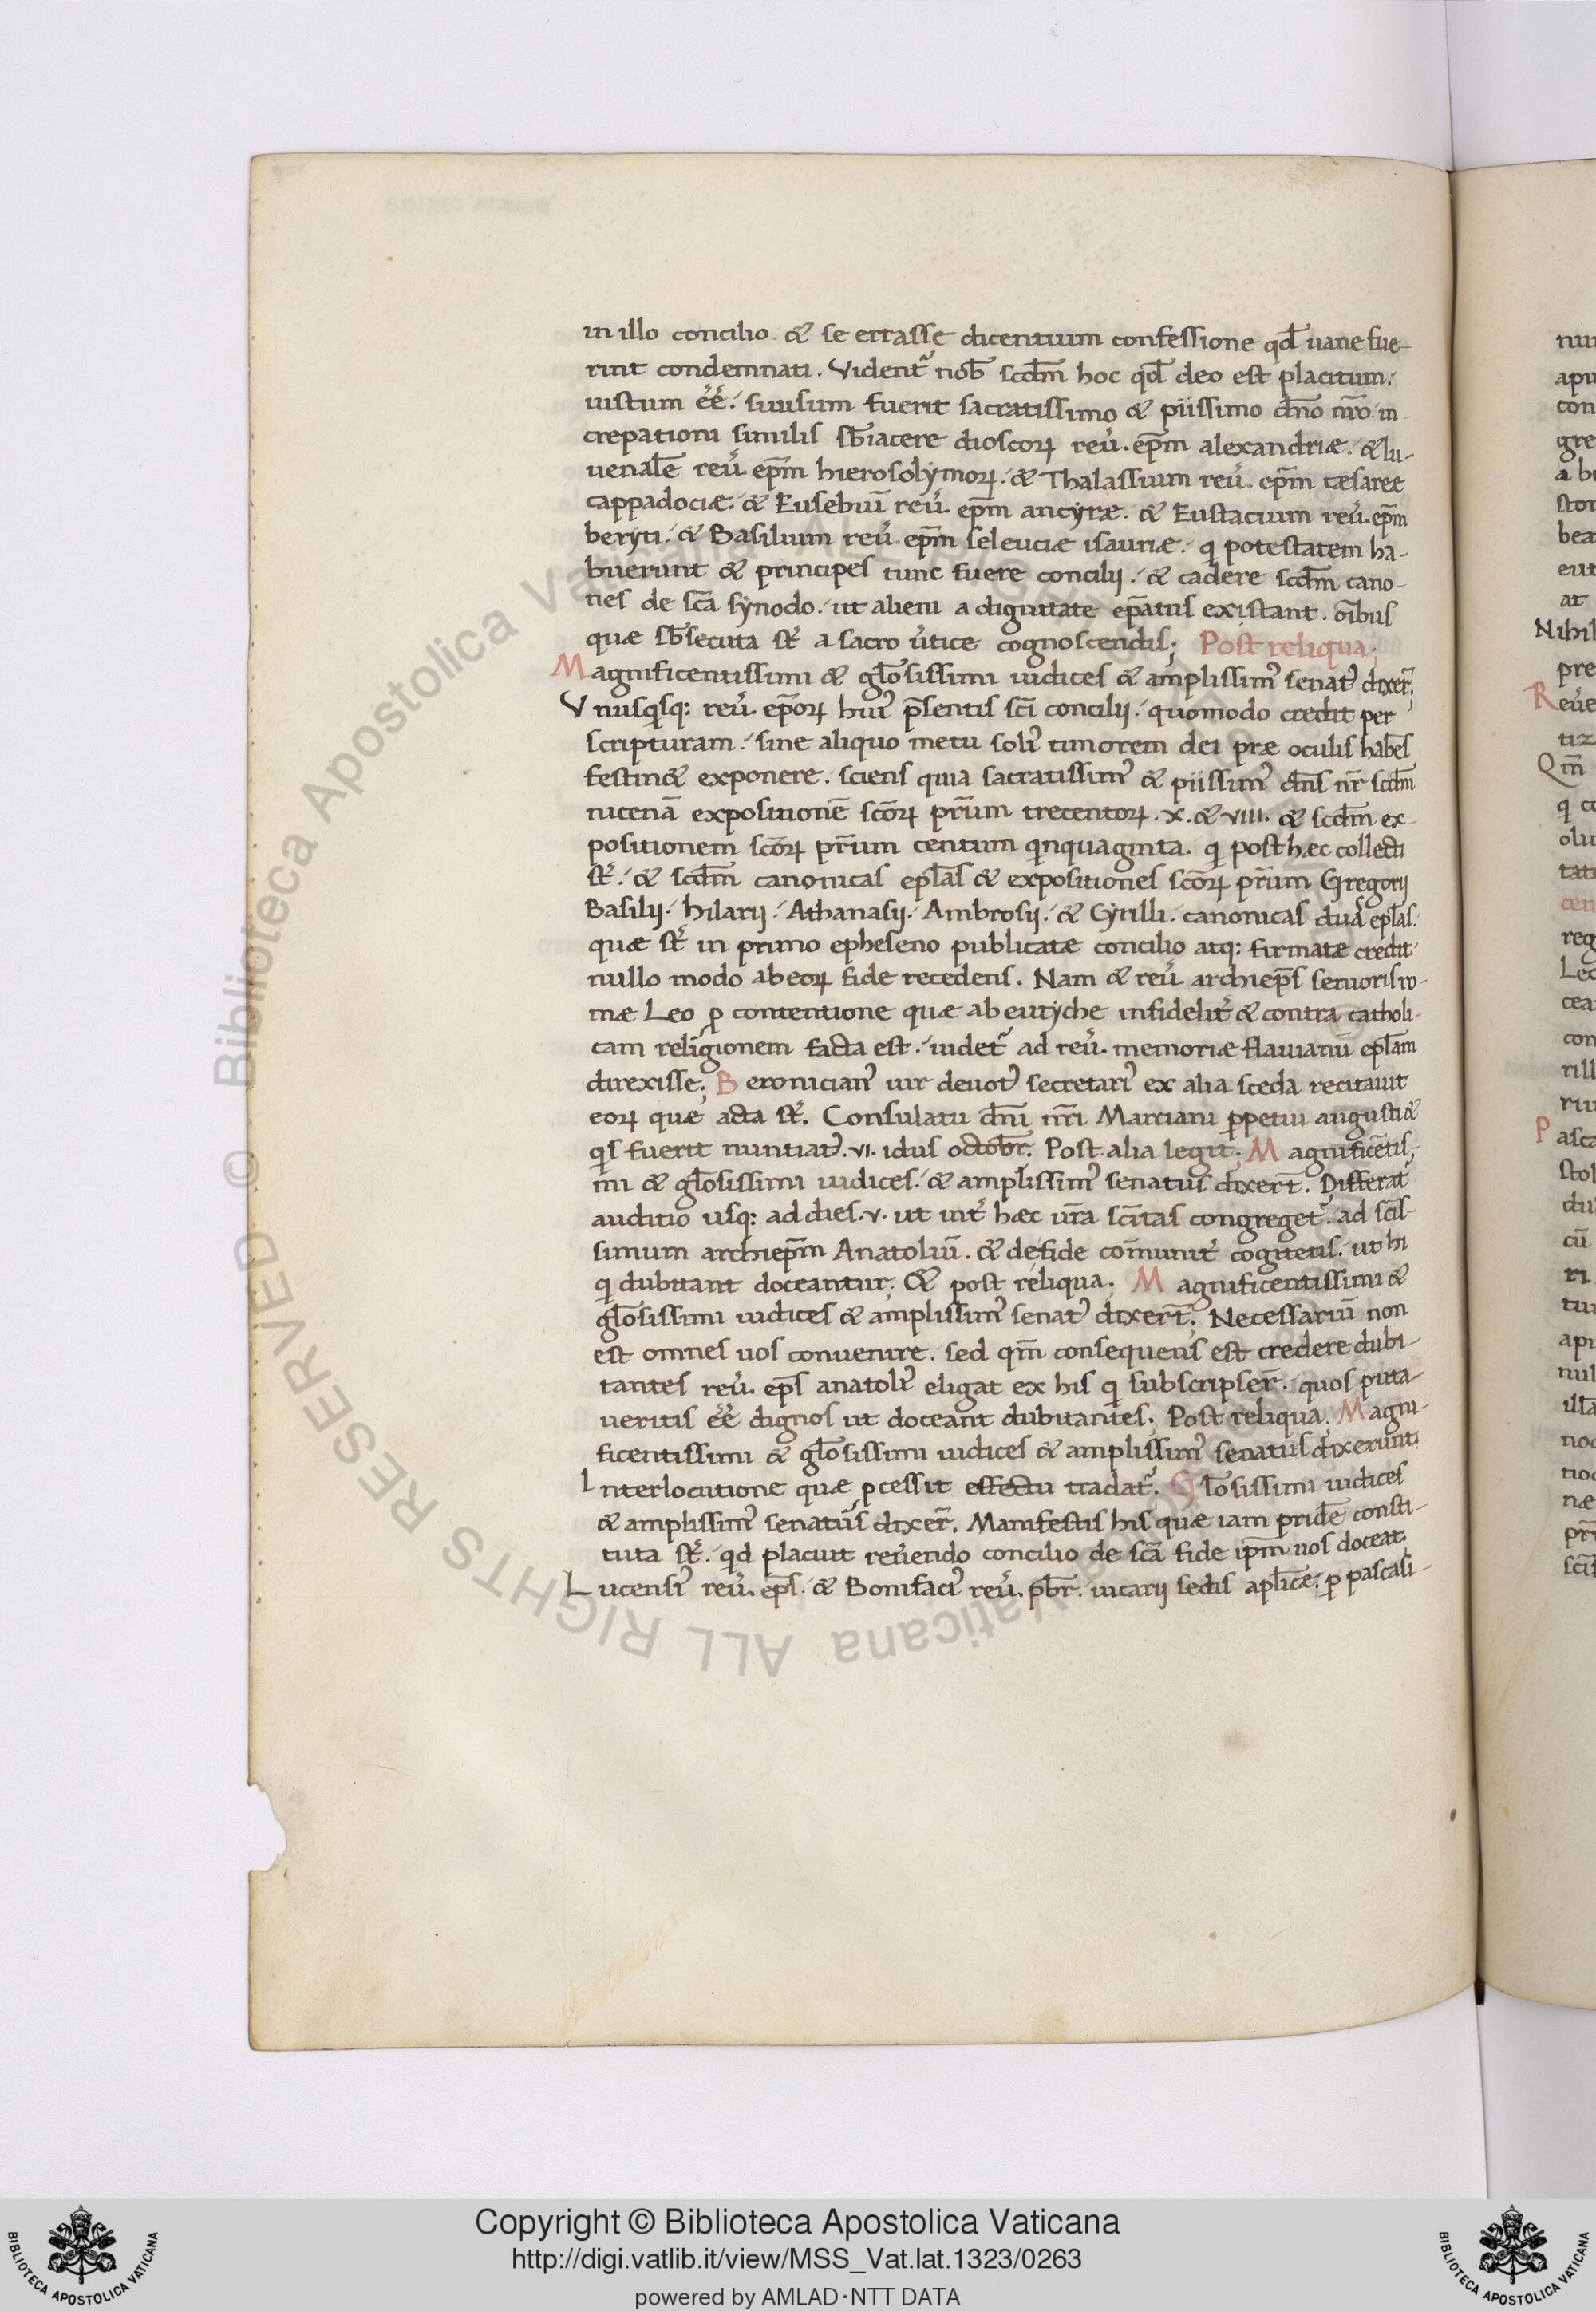 in illo concilio. & se errasse dicentium confessione qđ uane fue-
rint condemnati. Vident᷑ nob̄ scd̄m hoc qđ deo est placitum.
iustum ēē. si uisum fuerit sacratissimo & piissimo dn̄o nr̄o. in-
crepationi similis sb̄iacere dioscoꝝ reū. ep̄m alexandriæ. & Iu-
uenalē reū. ep̄m hierosolymoꝝ. & Thalassium reū. ep̄m cæsareæ
cappadociæ. & Eusebiū reū. ep̄m ancyræ. & Eustacium reū. ep̄m
beryti. & Basilium reū. ep̄m seleuciæ isauriæ. q potestatem ha-
buerunt & principes tunc fuere concilij. & cadere scd̄m cano-
nes de sc̄a synodo. ut alieni a dignitate ep̄atus existant. oībus
quæ sb̄secuta st̄ a sacro ūtice cognoscendis; Post reliqua;
Magnificentissimi & glo͞sissimi iudices & amplissim᾿ senat᾿ dixer̄;
Vnusqisq: reū. ep̄oꝝ hui᾿ p̄sentis sc̄i concilij. quomodo credit per
scripturam. sine aliquo metu soli᾿ timorem dei præ oculis hab̄es
festin& exponere. sciens quia sacratissim᾿ & piissim᾿ dn̄s nr̄ scd̄m
nicenā expositionē sc̄oꝝ pr̄um trecentoꝝ. x. & VIII. & scd̄m ex-
positionem sc̄oꝝ pr̄um centum qinquaginta. q post hæc collecti
st̄. & scd̄m canonicas epl̄as & expositiones sc̄oꝝ pr̄um Gregorij
Basilij. hilarij. Athanasij. Ambrosij. & Cyrilli. canonicas duas epl̄as.
quæ st̄ in primo epheseno publicatæ concilio atq: firmatæ credit.
nullo modo ab eoꝝ fide recedens. Nam & reū archiep̄s senioris ro-
mæ Leo ꝑ contentione quæ ab eutyche infidelit̄ & contra catholi-
cam religionem facta est. uidet᷑ ad reū. memoriæ flauianū epl̄am
direxisse; Beronician᾿ uir deuot᾿ secretari᾿ ex alia sceda recitauit
eoꝝ quæ acta st̄. Consulatu dn̄i nr̄i Marciani ꝑpetui augusti &
qis fuerit nuntiat᾿. VI. idus octobr̄. Post alia legit; Magnificētis-
mi & glo͞sissimi iudices. & amplissim᾿ senatus dixer̄t. Differat᷑
auditio usq: ad dies. v. ut int̄ hæc ur̄a sc̄itas congreget᷑. ad sc̄is-
simum archiep̄m Anatoliū. & de fide com̄unit̄ cogitetis. ut hi
q dubitant doceantur; & post reliqua; Magnificentissimi &
glo͞sissimi iudices & amplissim᾿ senat᾿ dixer̄t; Necessariū non
est omnes uos conuenire. sed qm̄ consequens est credere dubi-
tantes reū. ep̄s anatoli᾿ eligat ex his q subscripser̄. quos puta-
ueritis ēē dignos ut doceant dubitantes; Post reliqua; Magni-
ficentissimi & glo͞sissimi iudices & amplissim᾿ senatus dixerunt;
Interlocutione quæ ꝓcessit effectu tradat᷑. Glo͞sissimi iudices
& amplissim᾿ senatus dixer̄. Manifestis his quæ iam pridē consti-
tuta st̄. qd placuit reūendo concilio de sc̄a fide ip̄m nos doceat,
Lucensi᾿ reū. ep̄s. & Bonifaci᾿ reū. pb̄r. uicarij sedis apl̄icæ. ꝑ pascasi-
© Biblioteca Apostolica Vaticana ALL RIGHTS RESERVED
Copyright © Biblioteca Apostolica Vaticana
http://digi.vatlib.it/view/MSS_Vat.lat.1323/0263
powered by AMLAD·NTT DATA
BIBLIOTECA APOSTOLICA VATICANA
BIBLIOTECA APOSTOLICA VATICANA